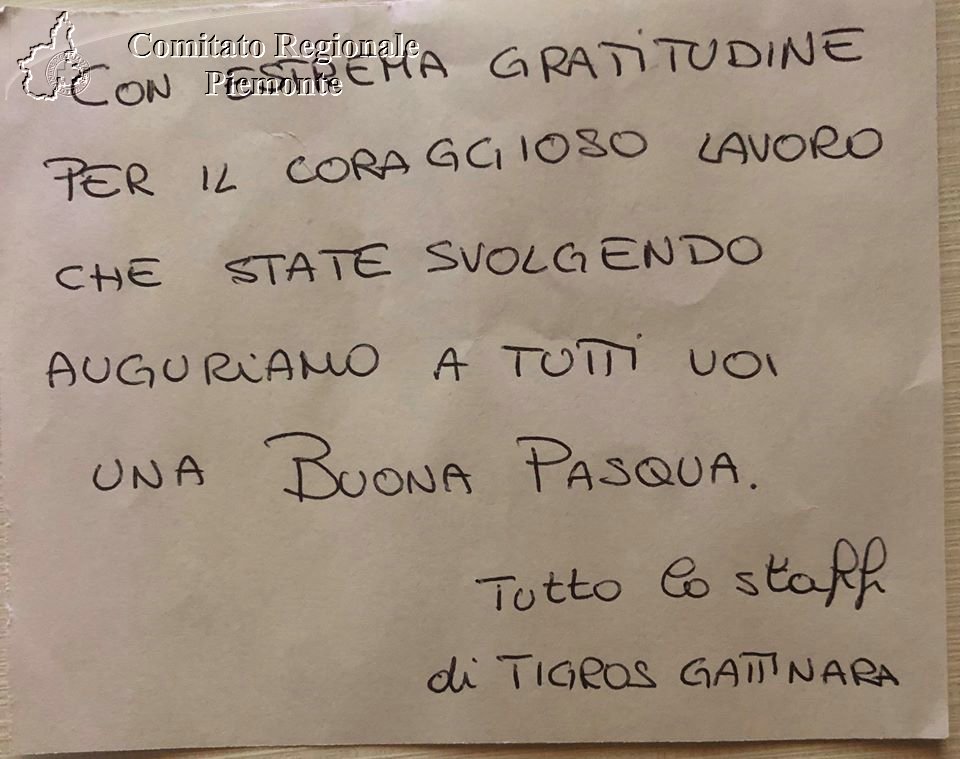 Comitato Regionale
Piemonte
CON ESTREMA GRATITUDINE
PER IL CORAGGIOSO LAVORO
CHE STATE SVOLGENDO
AUGURIAMO A TUTTI VOI
UNA BUONA PASQUA.
Tutto lo staff
di TIGROS GATTINARA